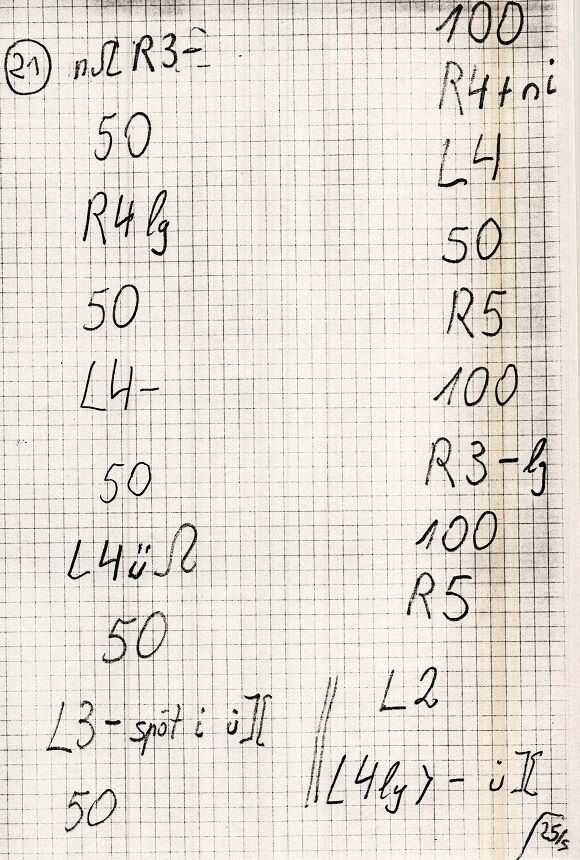 21 nΩ R3-
50
R4 lg
50
L4-
50
L4 ü Ω
50
L3- spät i ü ][
50
100
R4+ni
L4
50
R5
100
R3-lg
100
R5
L2
L4lg>- ü ][